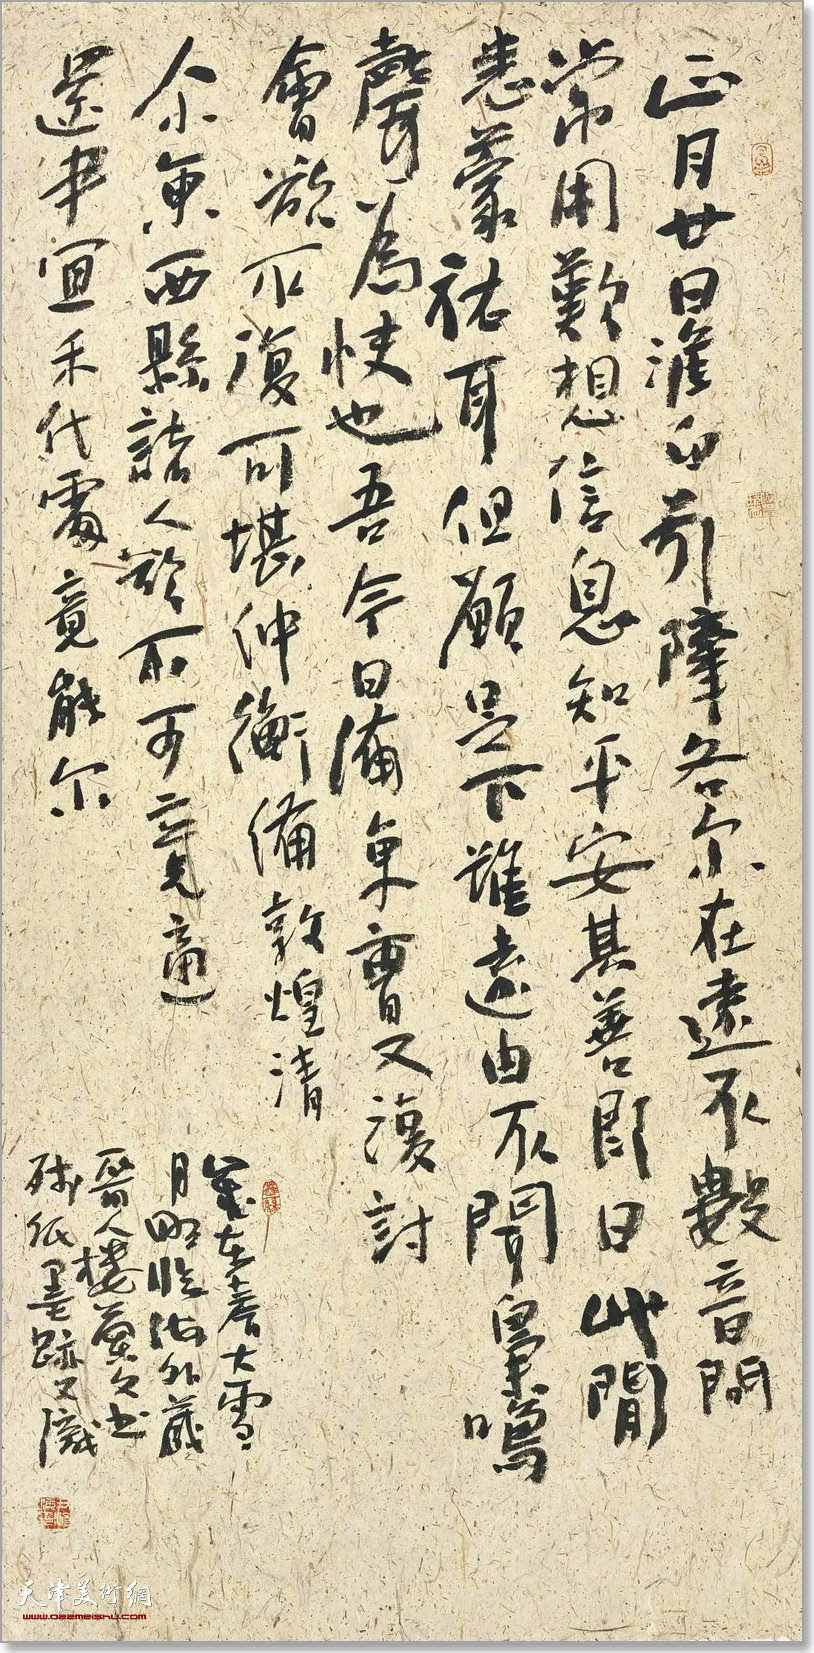 正月廿日淮白引隆各尔在遠不數音問
常用歎想信息知平安其善即日此間
悉蒙祐耳但顧足下雖遠由不聞梟鳴
聲為快也吾今日備東曹又復討
會欲不復可堪仲衡備敦煌清
尔東西縣諸人欲不可竟適
還書宜禾代雷竟能尔
大雪
月明臨海外藏
晉人樓蘭文書
殘紙墨跡又識
天津美術網
www.022meishu.com